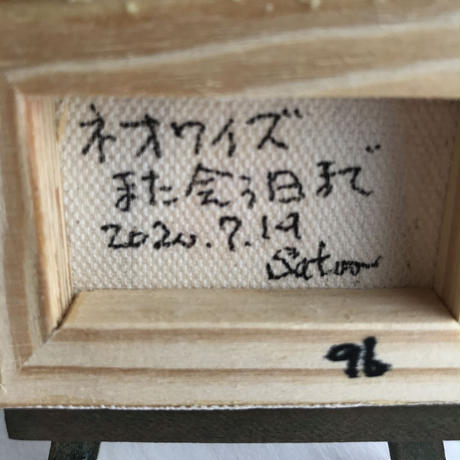 ネオワイズ
また会う日まで
2020.7.19
Satoo
96